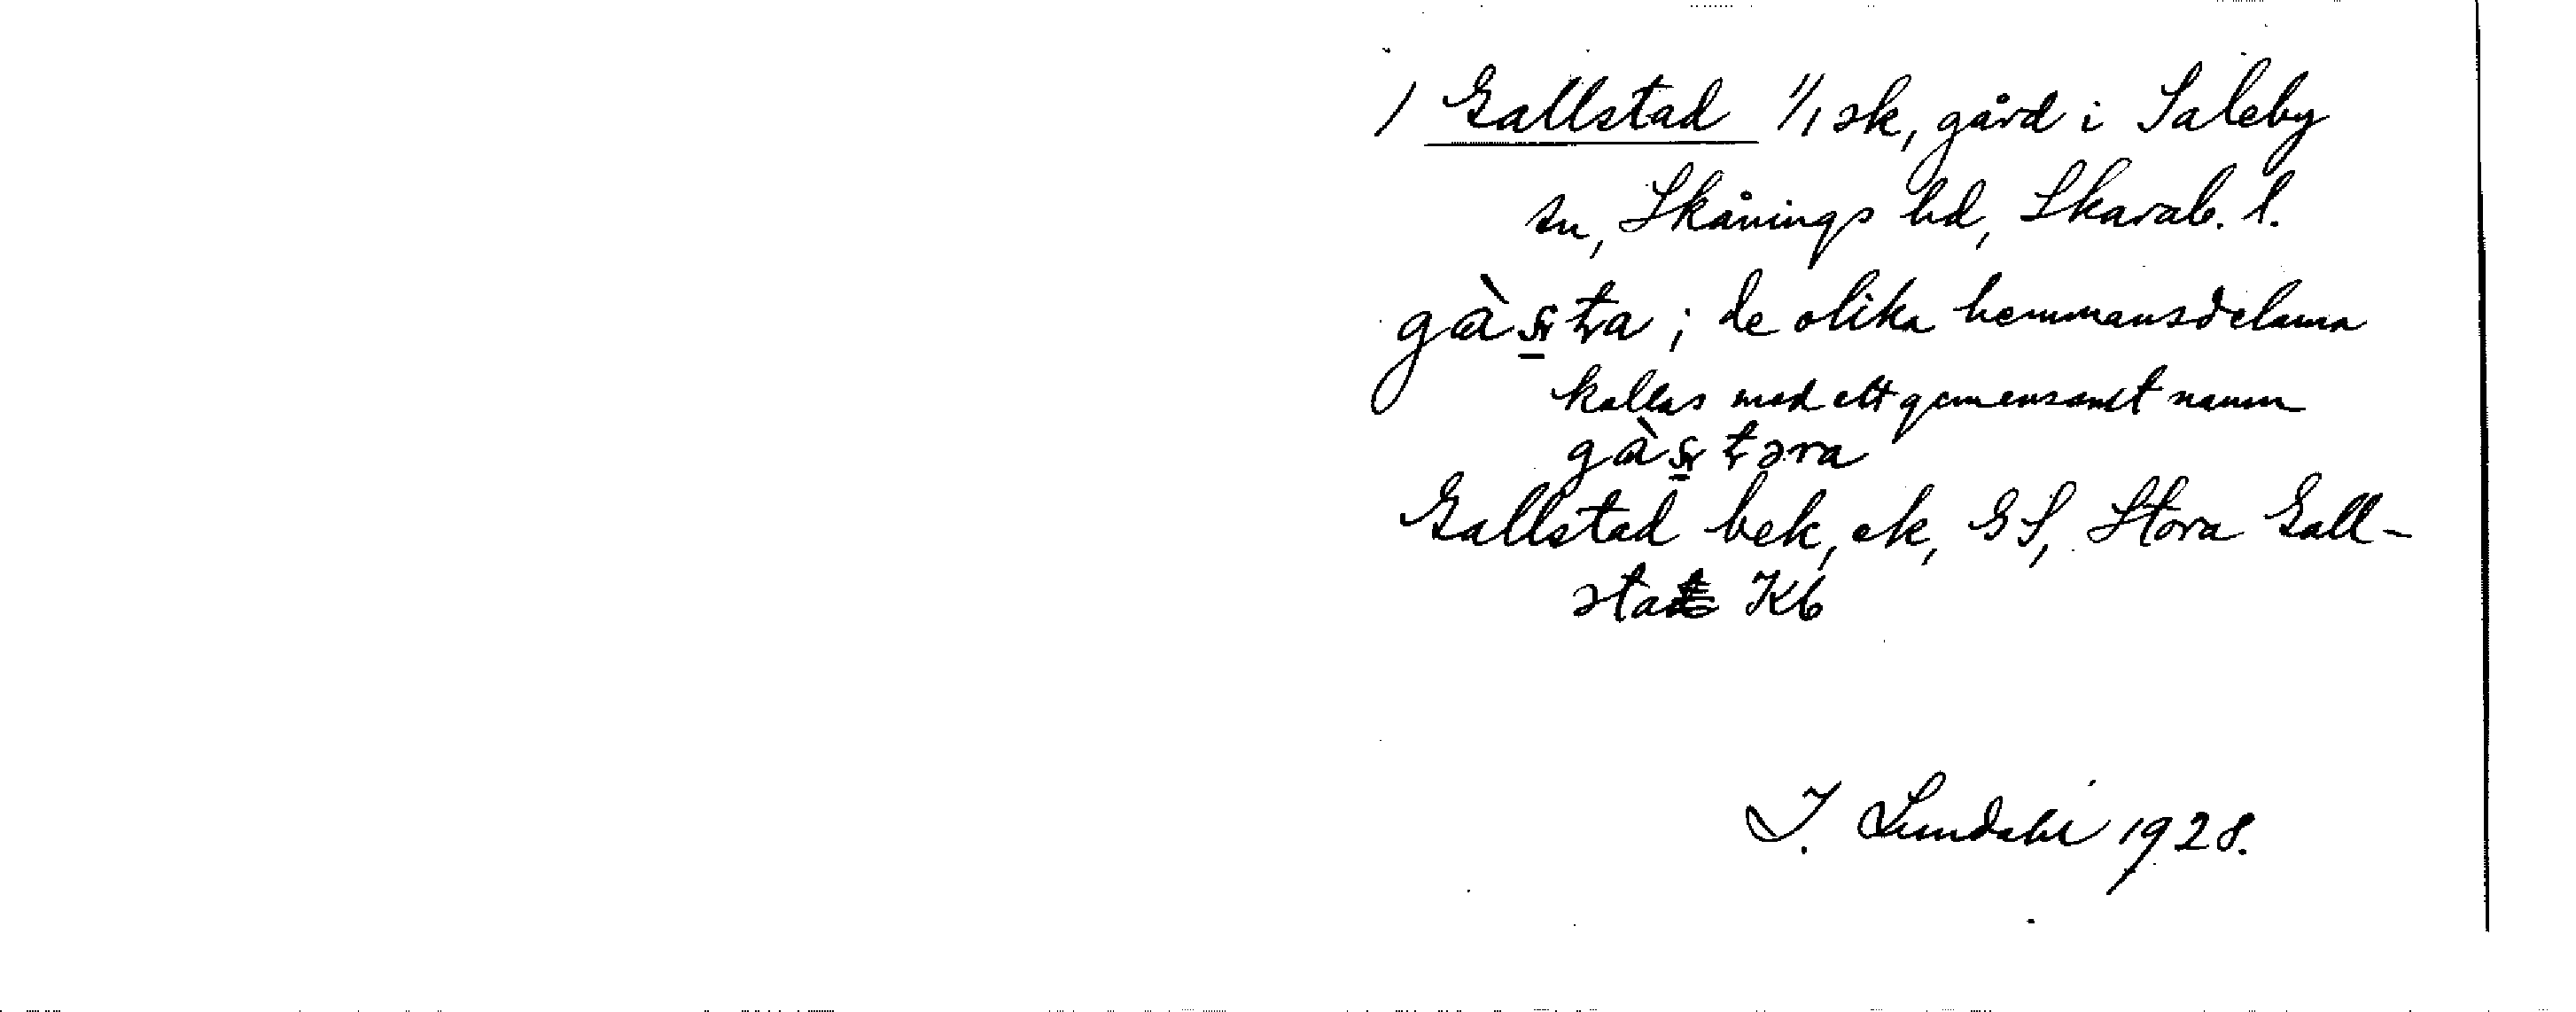 / Gallstad 1/1 sk, gård i Saleby
sn, Skånings hd, Skarab. l.
gàʂ̠ʈa ; de olika hemmansdelarna
kallas med ett gemensamt namn
gàʂ̠ʈəra
Gallstad bek, ek, GS, Stora Gall-
stad Kb
I. Lundahl 1928.